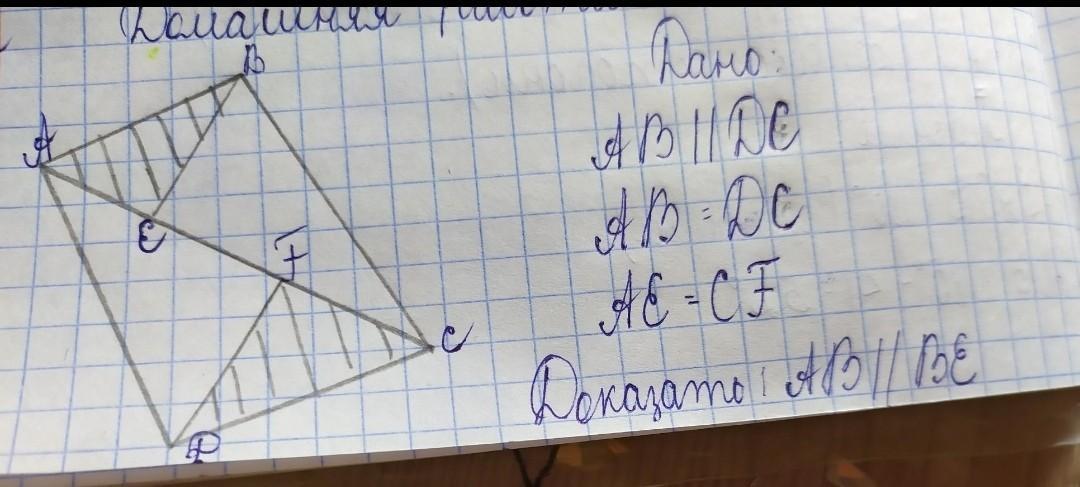 Домашняя
B
Дано:
A
AB || DC
E
AB = DC
F
AE = CF
C
Доказать: AB || BE
D